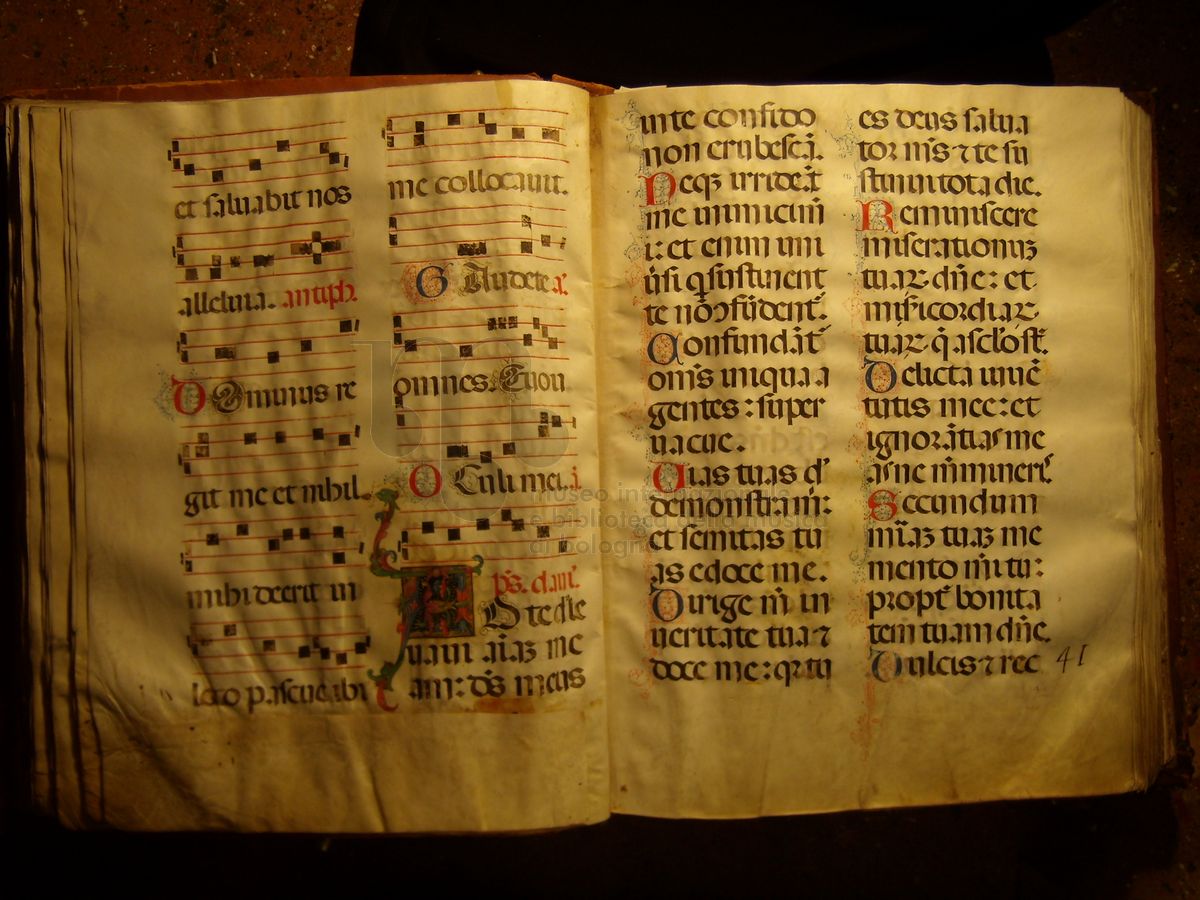 et saluabit nos
alleluia. antiph.
DOminus re
git me et nihil
mihi deerit in
loco pascue ibi
me collocauit.
GAudete a.
omnes. Euou
OCuli mei. a.
ps. dauit.
AD te dñe
leuaui aīaz me
am: dˢ meus
in te confido
non erubescā.
Neqz irrideāt
me inimici m̄
i: et enim uni
ūsi q̄ sustinent
te nō ↄfūdent̄.
Confundāt̄
om̄s iniqua a
gentes: super
uacue.
Uias tuas d̄
demonstra m̄:
et semitas tu
as edoce me.
Dirige m̄ in
ueritate tua ⁊
doce me: qr tu
es deus salua
tor m̄s ⁊ te su
stinui tota die.
Reminiscere
miserationuz
tuaꝝ dn̄e: et
mīsicordiaꝝ
tuaꝝ q̄ a sc̄lo st̄.
Delicta iuuē
tutis mee: et
ignorātias me
as ne m̄mineris̄.
Secundum
mīaz tuaz me
mento m̄i tu:
propt̄ bonita
tem tuam dn̄e.
Dulcis ⁊ rec
41
museo internazionale
e biblioteca della musica
di bologna